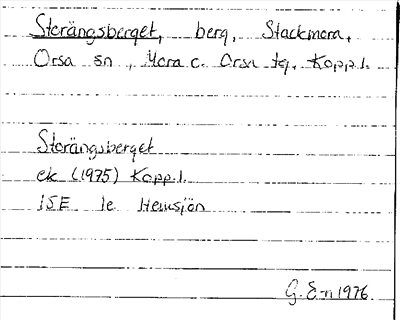 Storängsberget, berg, Stackmora,
Orsa sn, Mora o. Orsa tg. Kopp.l.
Storängsberget
ek (1975) Kopp.l.
15E 1e Hemsjön
G. E-n 1976.